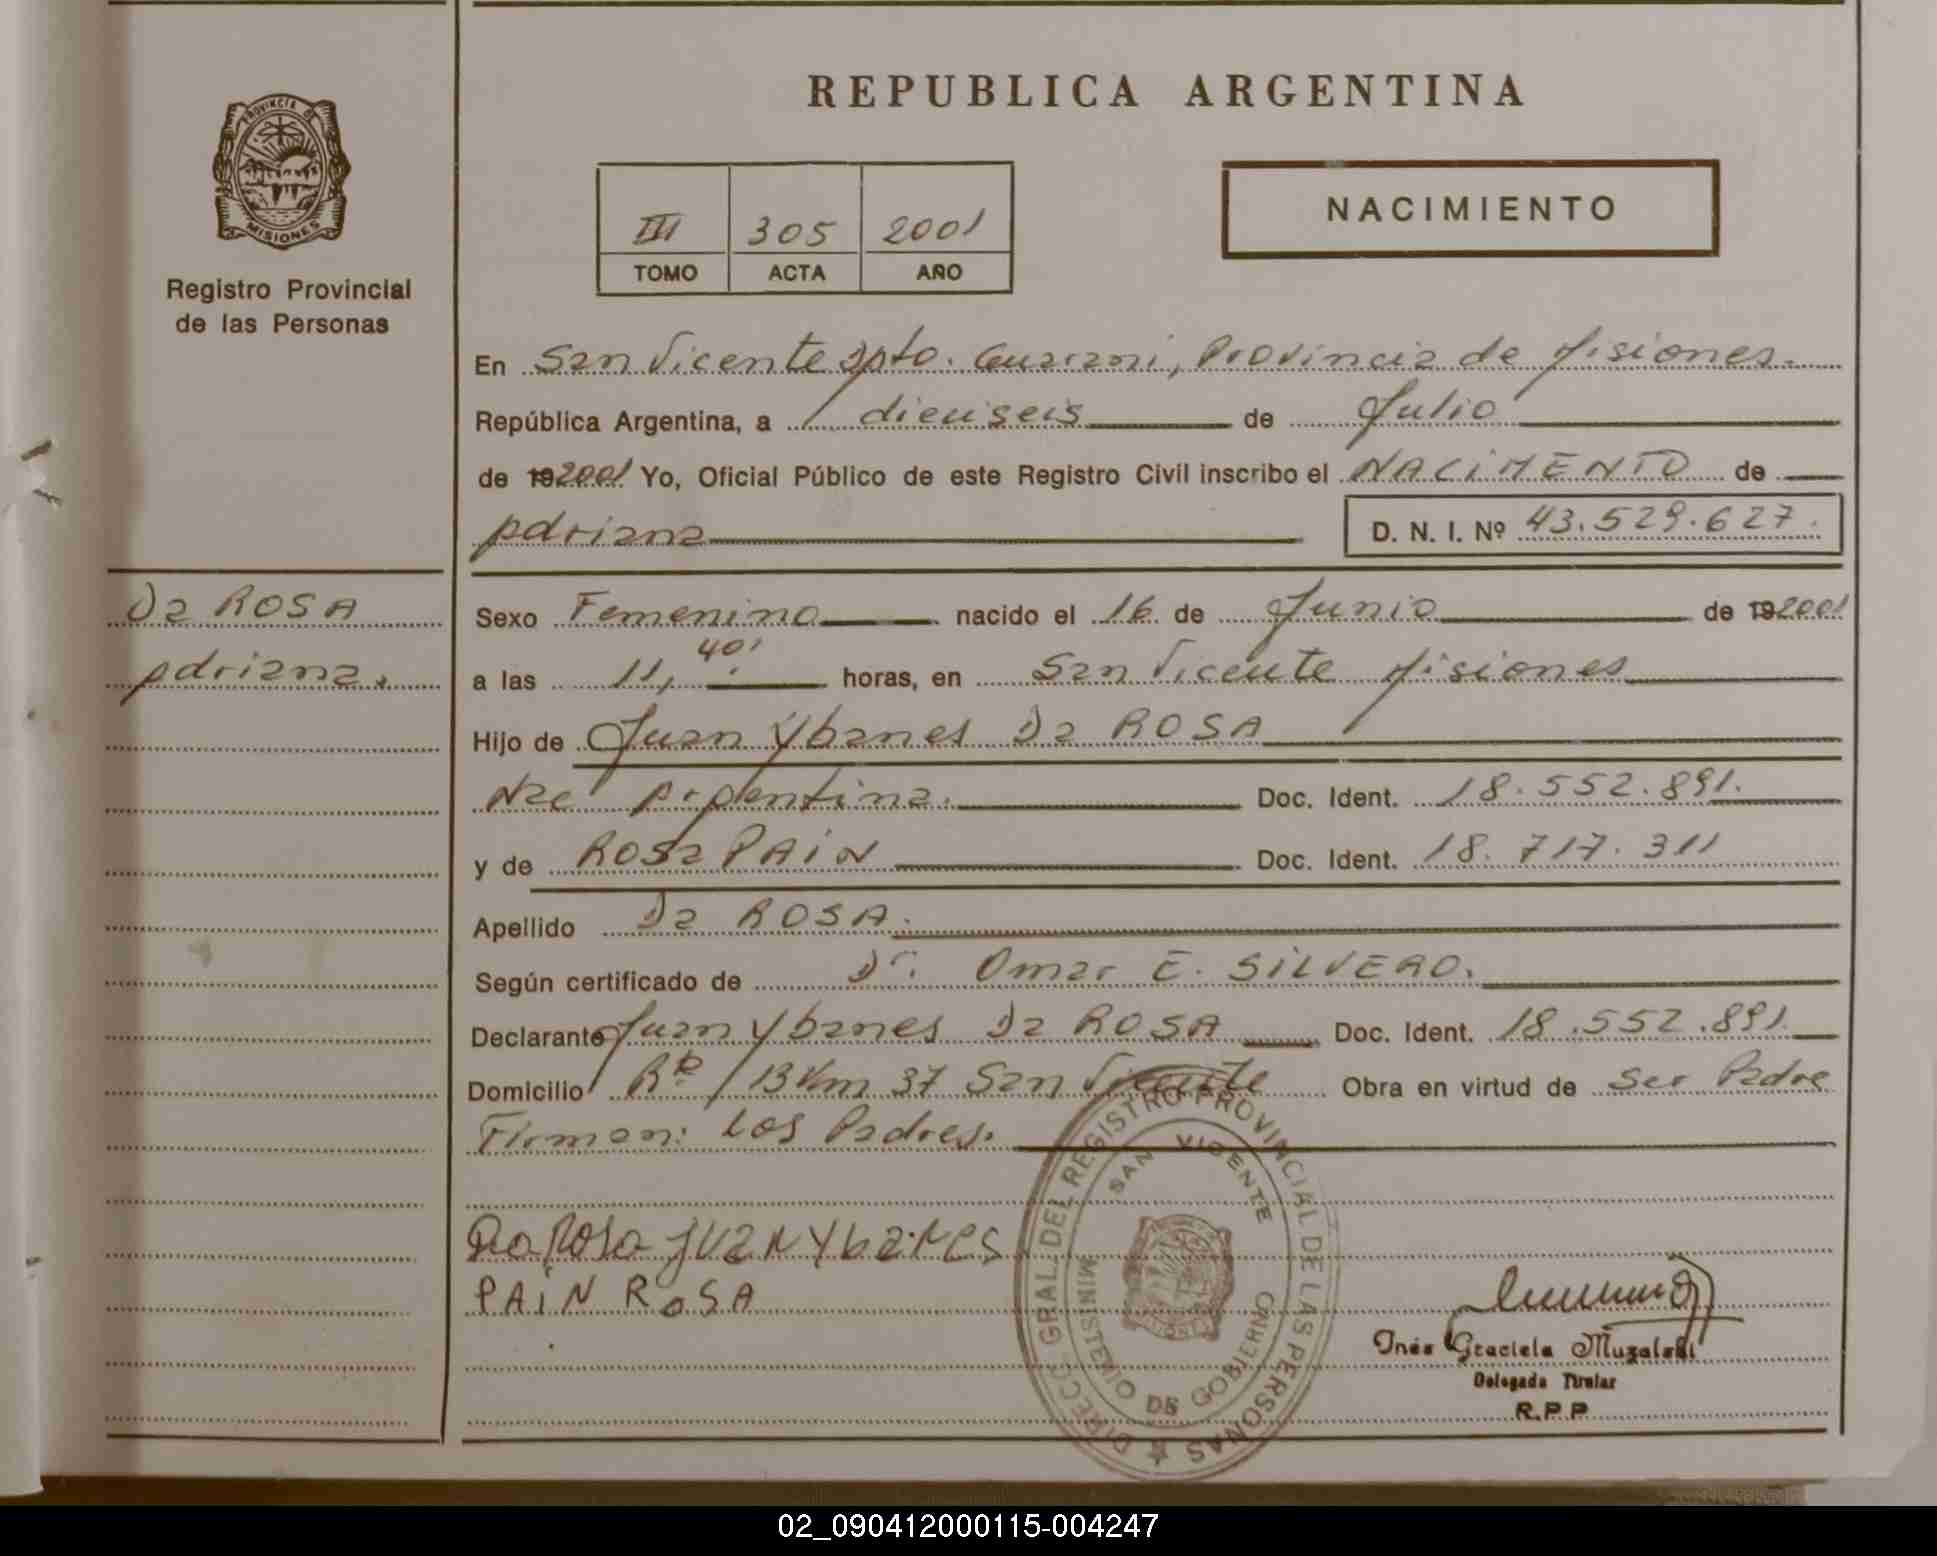 REPUBLICA ARGENTINA
PROVINCIA DE
MISIONES
Registro Provincial
de las Personas
III 305 2001
TOMO ACTA AÑO
NACIMIENTO
En San Vicente Dpto. Guarani, Provincia de Misiones.
República Argentina, a dieciseis de Julio
de 192001 Yo, Oficial Público de este Registro Civil inscribo el NACIMIENTO de
Adriana D. N. I. Nº 43.529.627.
Da ROSA
Adriana.
Sexo Femenino nacido el 16 de Junio de 192001
a las 11, 40' horas, en San Vicente Misiones
Hijo de Juan Ybanes Da ROSA
Nac Argentina. Doc. Ident. 18.552.891.
y de Rosa PAIN Doc. Ident. 18.717.311
Apellido Da ROSA.
Según certificado de Dr. Omar E. SILVERO.
Declarante Juan Ybanes Da ROSA Doc. Ident. 18.552.891
Domicilio Rta 13 Km 37 San Vicente Obra en virtud de ser Padre
Firman: Los Padres.
Da Rosa JUAN Ybanes
PAIN ROSA
DIRECC. GRAL. DEL REGISTRO PROVINCIAL DE LAS PERSONAS
SAN VICENTE
MINISTERIO DE GOBIERNO
Inés Graciela Muzalski
Delegada Titular
R.P.P
02_090412000115-004247